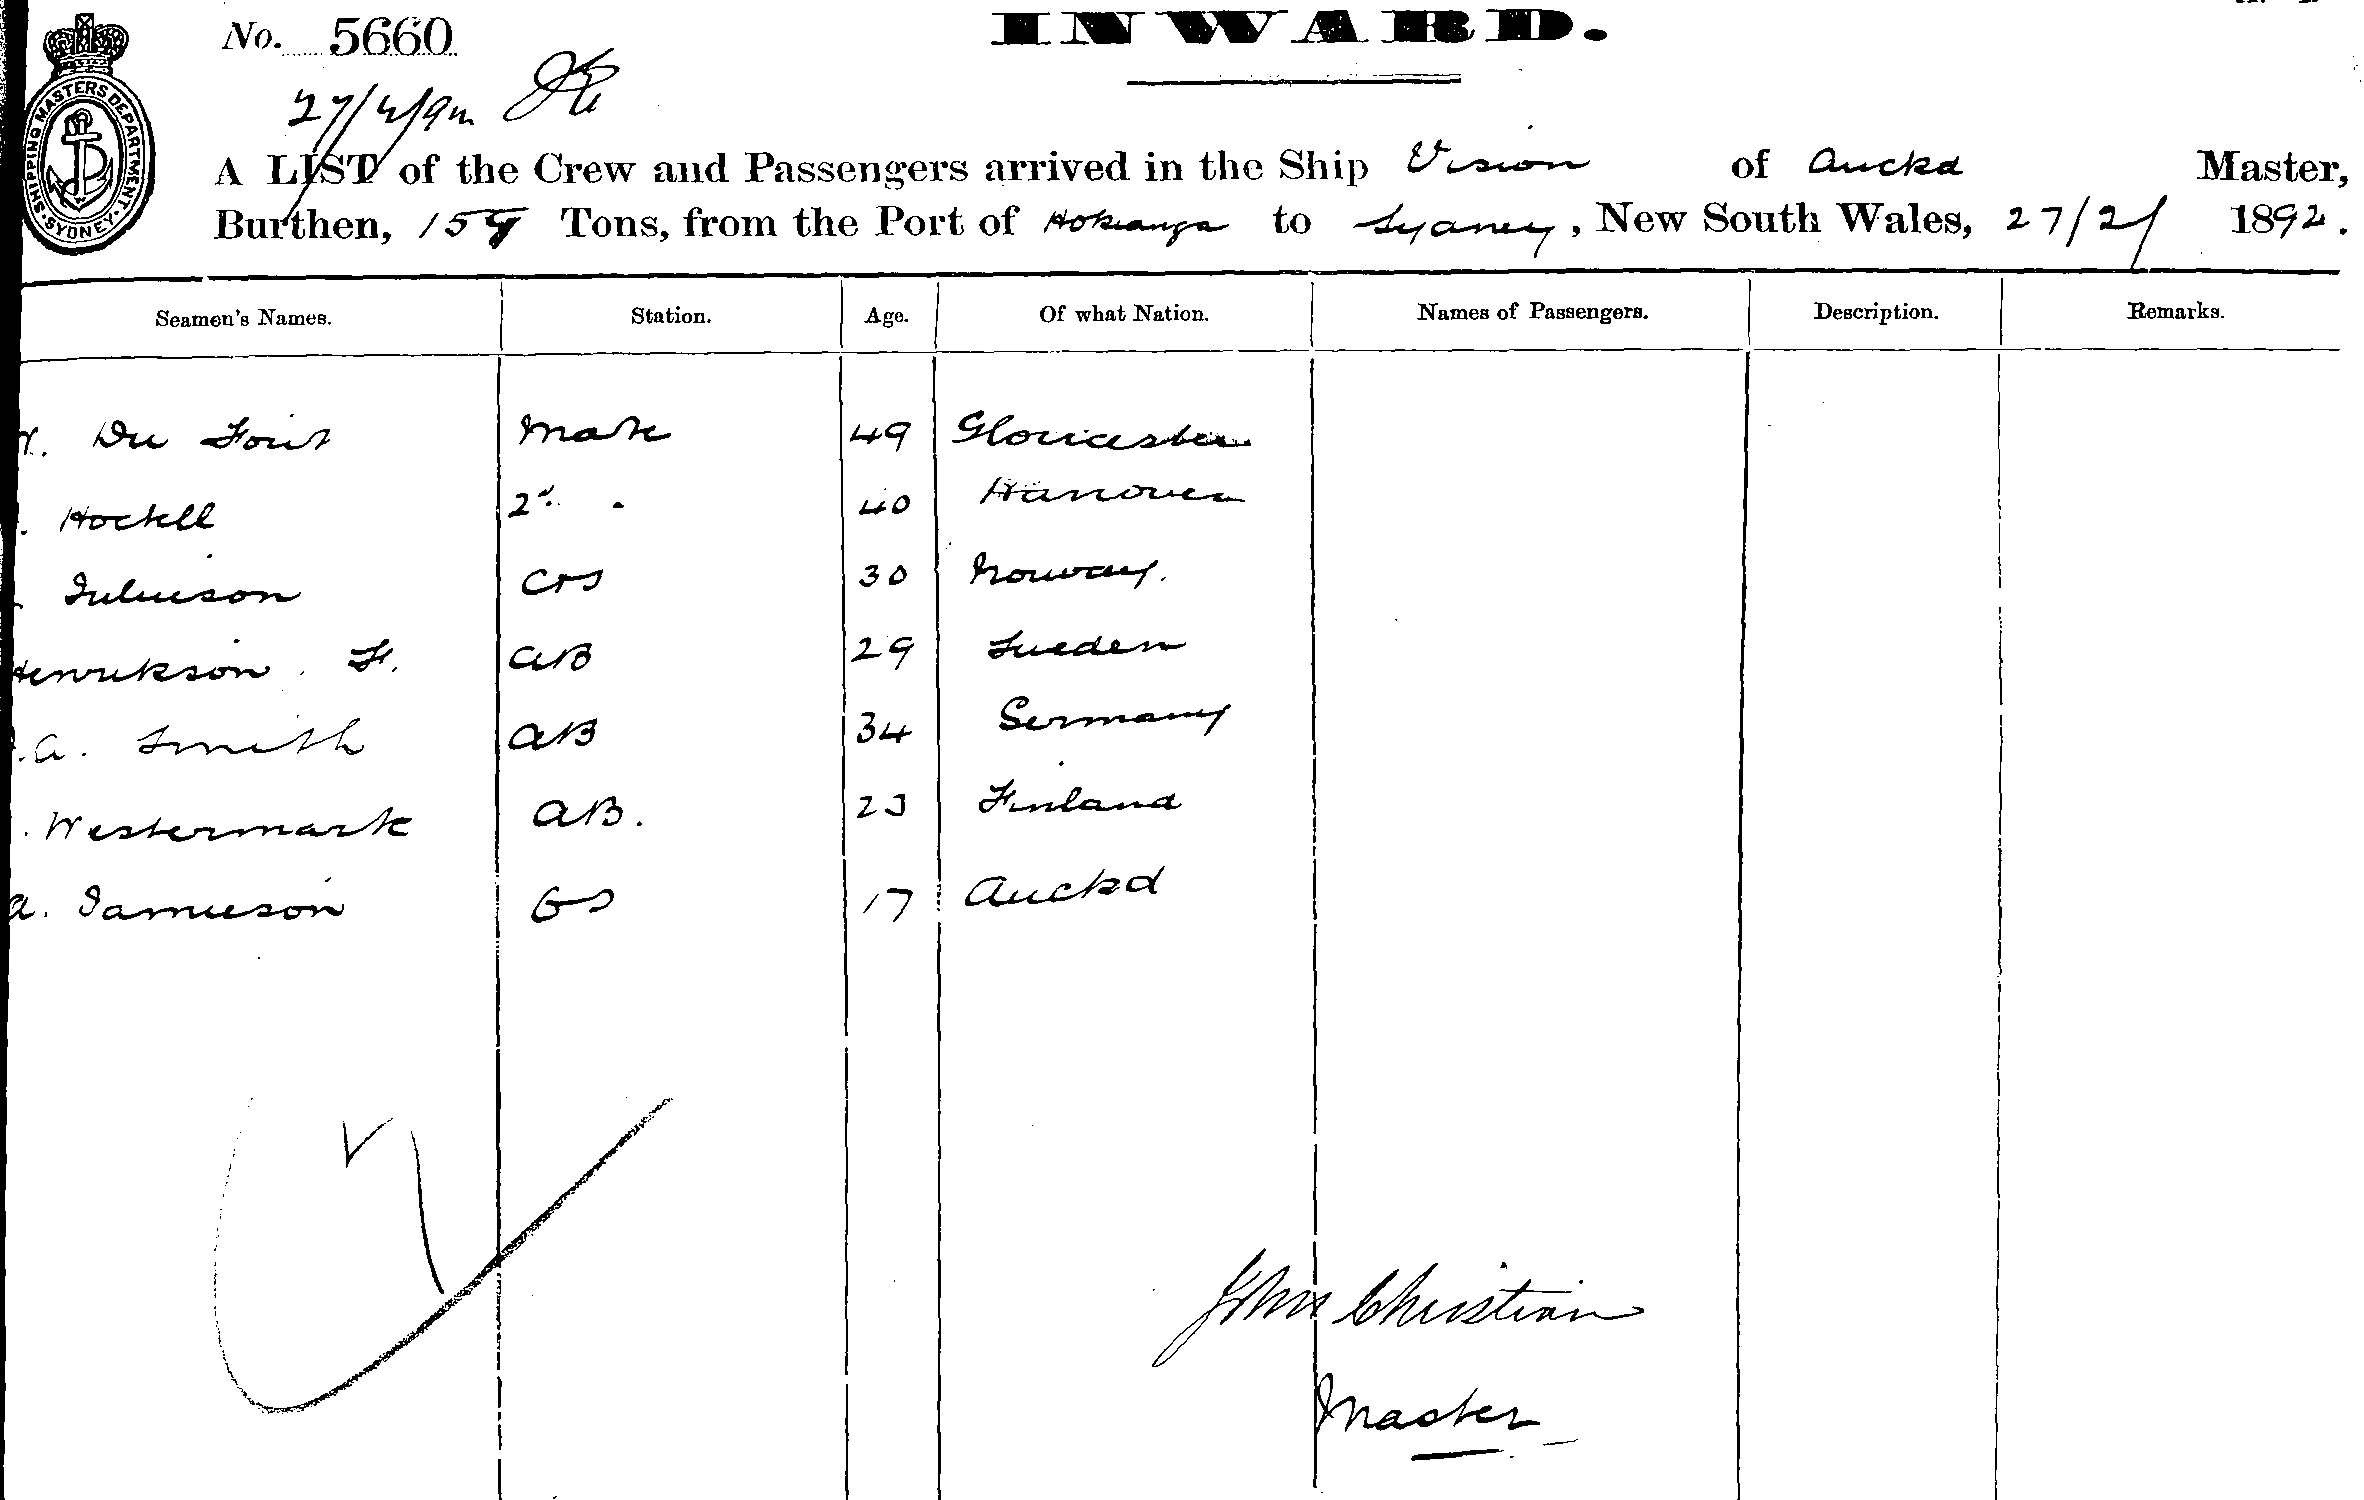 No. 5660
INWARD.
SHIPPING MASTERS DEPARTMENT. SYDNEY.
A LIST of the Crew and Passengers arrived in the Ship Vision of Auckd Master,
Burthen, 159 Tons, from the Port of Hokianga to Sydney, New South Wales, 27/2/ 1892.
Seamen's Names. Station. Age. Of what Nation. Names of Passengers. Description. Remarks.
Du Fout Mate 49 Gloucester
Hockell 2d. 40 Hanover
30 Norway.
Henrikson. F. AB 29 Sueden
A. Smith AB 34 Germany
Westermark AB. 23 Finland
A. Jamieson 17 Auckd
John Christian
Master